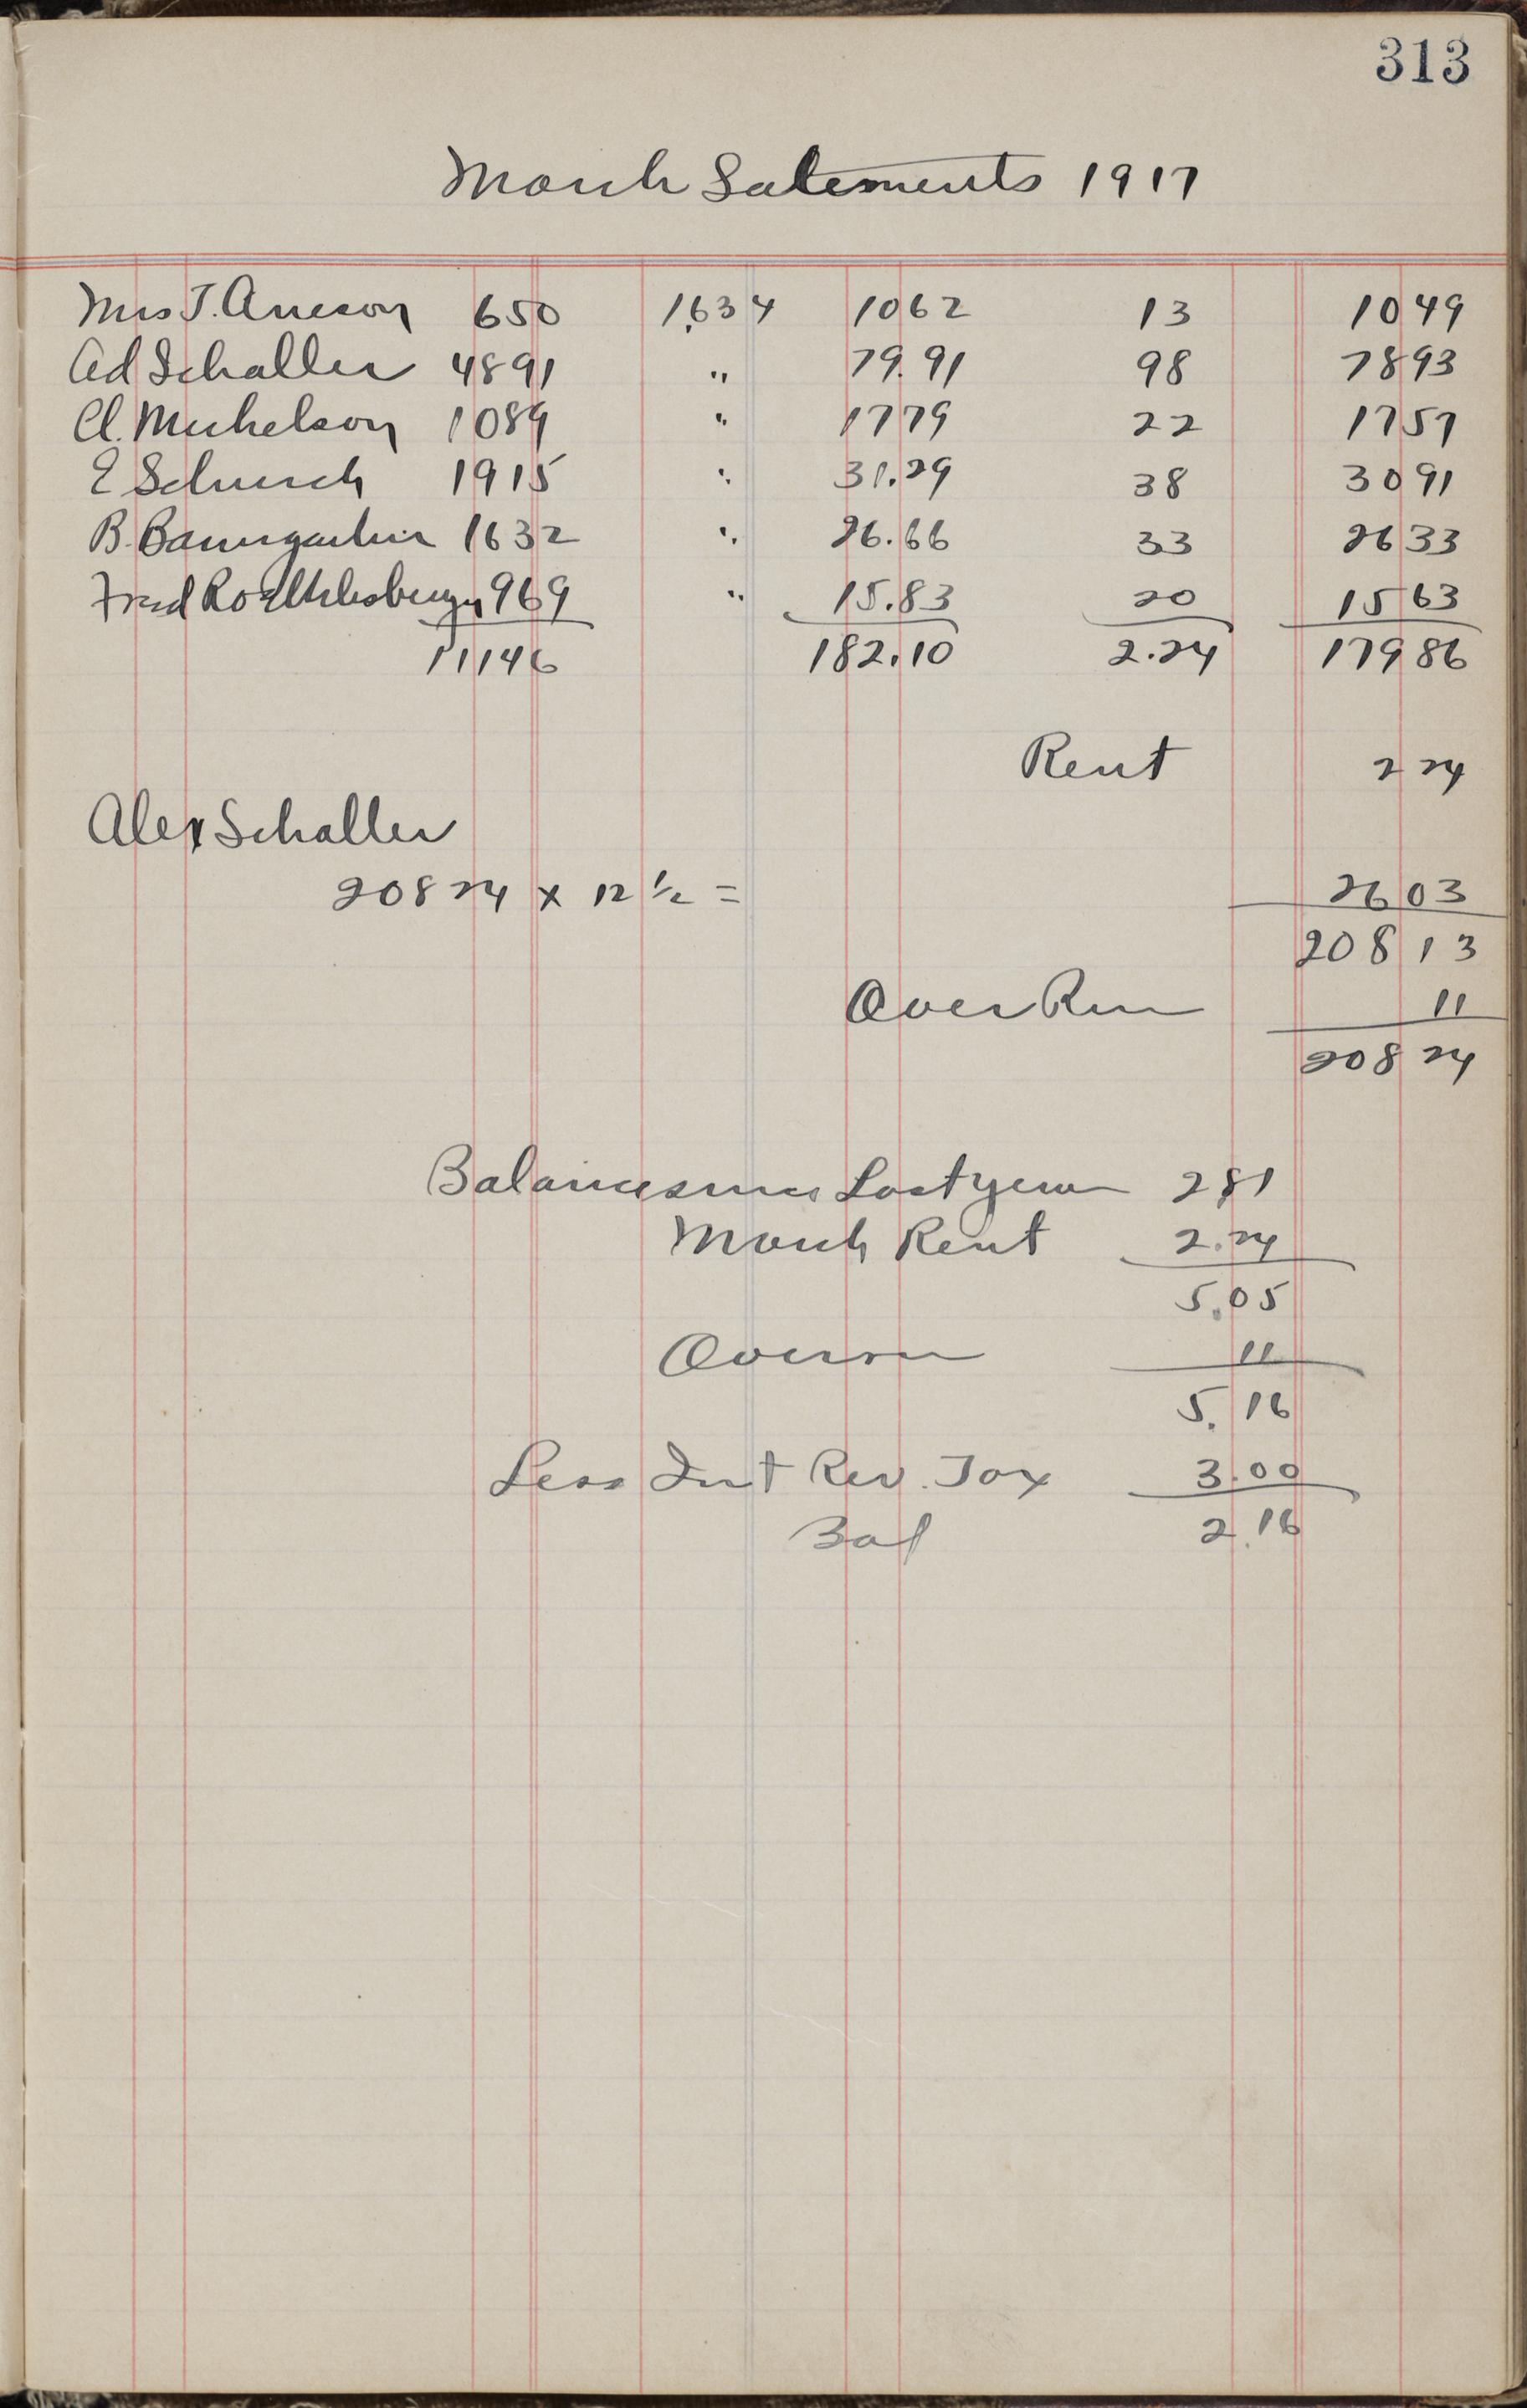 313
March Satements 1917
Mrs T. Arneson 650 1,634 1062 13 1049
Ad Schaller 4891 " 79.91 98 7893
Cl. Michelson 1089 " 1779 22 1757
E Schurch 1915 " 31.29 38 3091
B. Baumgartner 1632 " 26.66 33 2633
Fred Roethlisberger 969 " 15.83 20 1563
11146 182.10 2.24 17986
Rent 2 24
Alex Schaller
208 24 x 12 1/2 = 26 03
208 13
Over Run 11
208 24
Balance Last year 2 81
March Rent 2.24
5.05
Overrun 11
5.16
Less Int Rev. Tax 3.00
Bal 2.16